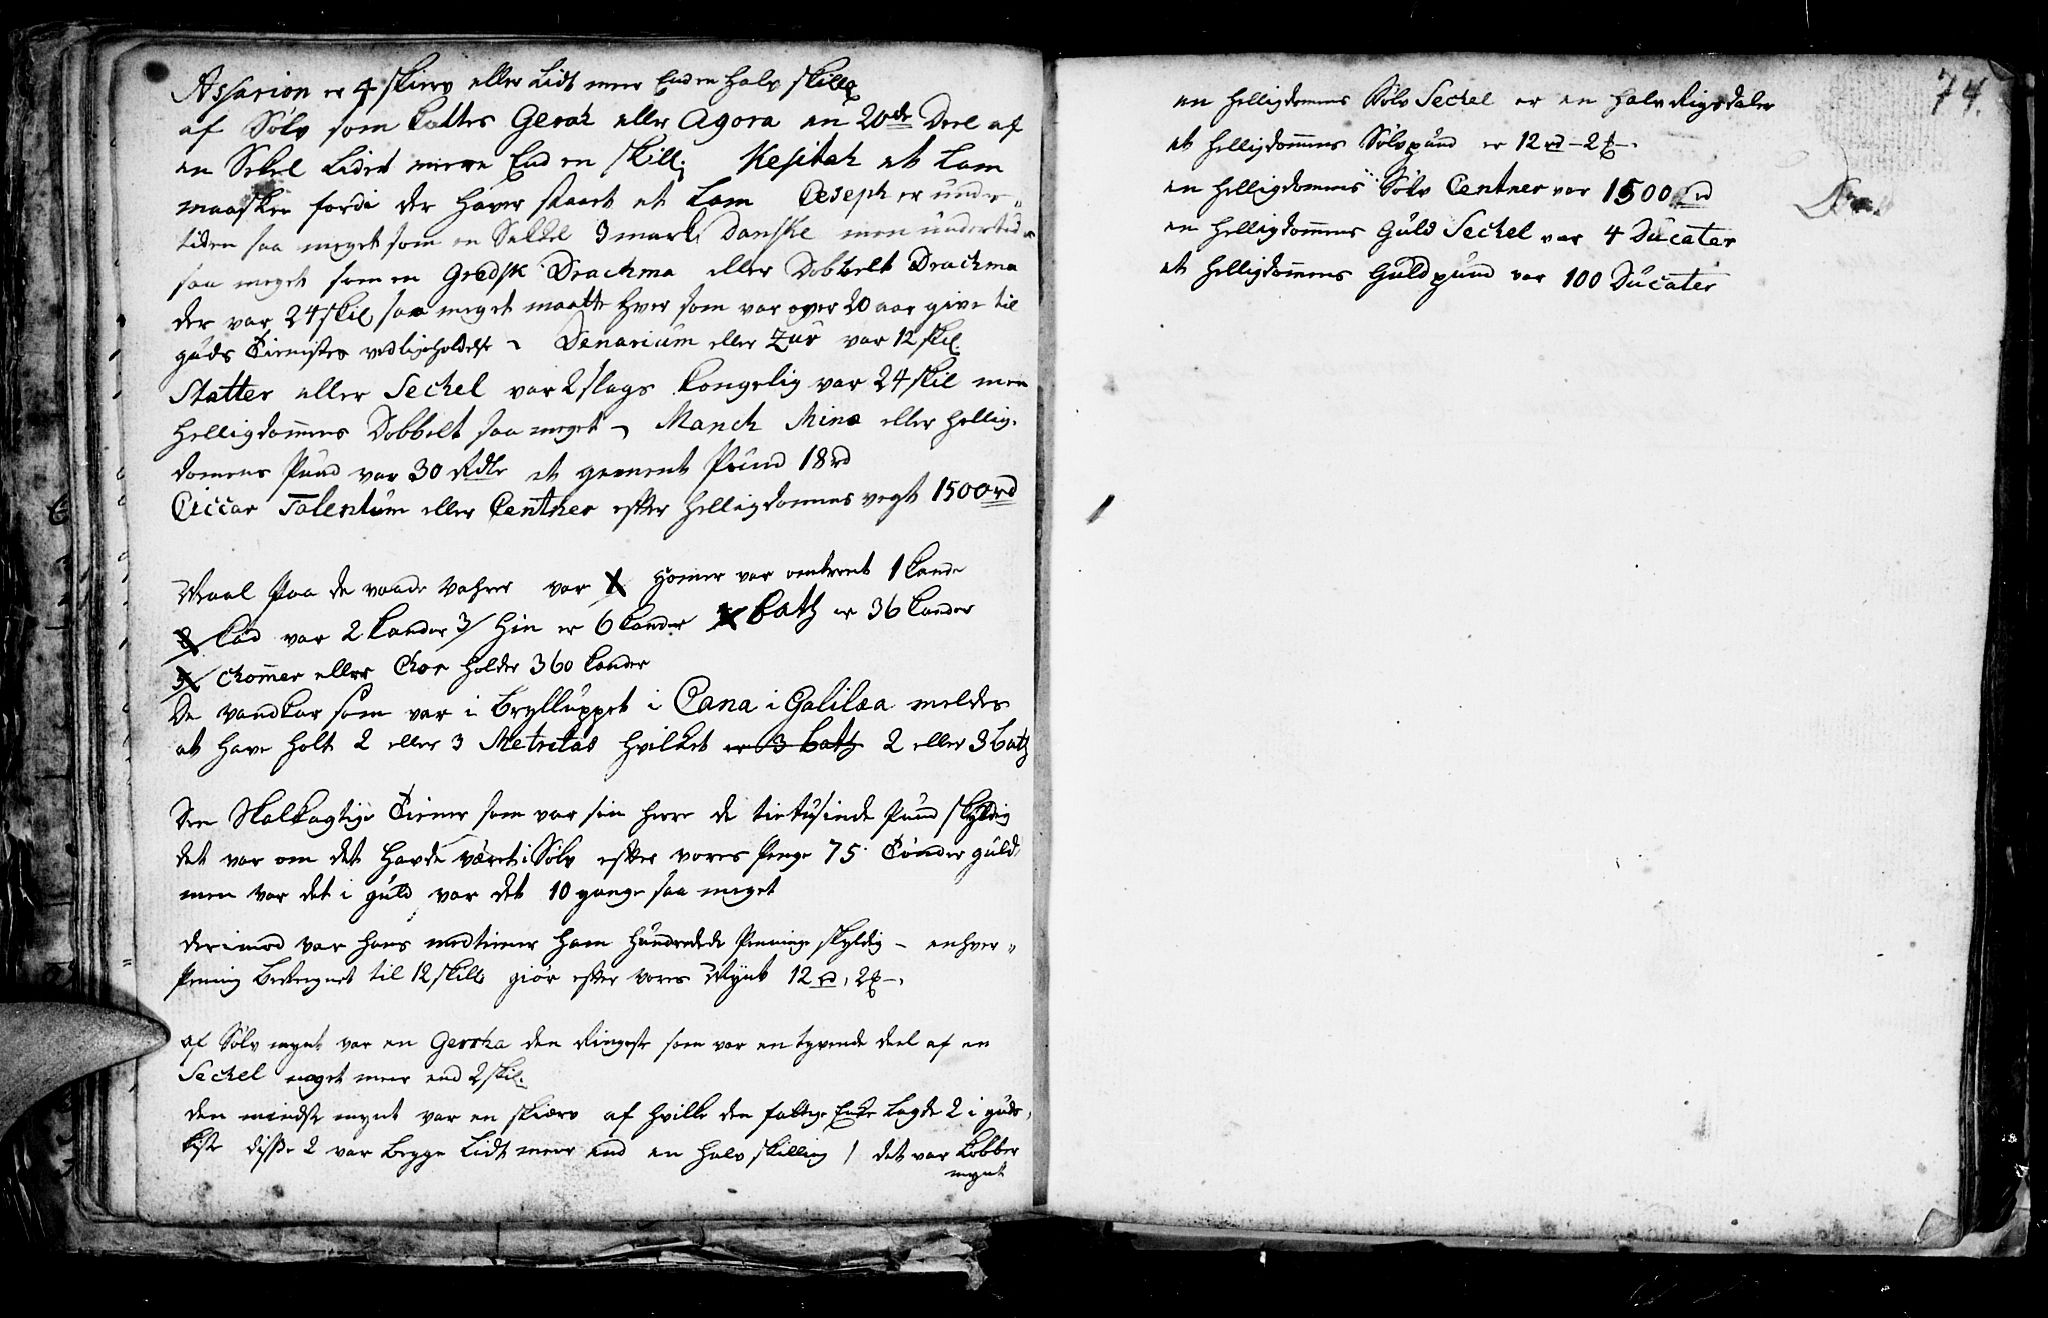 Assarion er 4 skierv eller Lidt meer End en halv skilling
af Sølv som kaltes Gerah eller Agora en 20de Deel af
en Sekel Lidet mere End en skill; Kesitah et Lam
maaskee fordi der haver staaet et Lam Ceseph er under-
tiden saa meget som en Sekkel 3 mark Danske men undertiden
saa meget som en Grædsk Drachma eller Dobbelt Drachma
der var 24 skil, saa meget maatte hver som var over 20 aar give til
guds Tienistes vedligeholdelse – Denarium eller Zur var 12 skil.
Statter eller Seckel var 2 slags kongelig var 24 skil men
helligdommens Dobbelt saa meget – Manch Minæ eller hellig-
domens Pund var 30 Rdlr et gemeent Pund 18 rd
Ciccar Talentum eller Centner efter helligdommens vegt 1500 rd
Maal paa de vaade vahrer var 1 Homer var omtrent 1 kande
2/ Cad var 2 kander 3/ Hin er 6 kander 4 bath er 36 kander
5/ Chomer eller Chor holder 360 kander
De vandkar som var i Brylluppet i Cana i Galilæa meldes
at have holt 2 eller 3 Metretas hvilket er 3 bath 2 eller 3 bath
Den Skalkagtige Tiener som var sin herre de tietusinde Pund skyldig
det var om det havde været i Sølv efter vores Penge 75 Tønder guld
men var det i guld var det 10 gange saa meget
derimod var hans medtiener ham hundrede Penninge skyldig – enhver
Pening Beregnet til 12 skill giør efter vores Mynt 12 rd, 2 –.
af Sølv mynt var en Gersha den Ringeste som var en tyvende deel af en
Seckel noget meer end 2 skil.
den mindste mynt var en skierv af hvilke den fattige Enke lagde 2 i guds
kiste disse 2 var begge Lidt meer end en halv skilling / det var kobber
mynt
74.
en helligdommens Sølv Seckel er en halv Rigsdaler
et helligdommens Sølvpund er 12 rd – 2 –.
en helligdommens Sølv Centner var 1500 rd
en helligdommens Guld Seckel var 4 Ducater
et helligdommens Guldpund var 100 Ducater